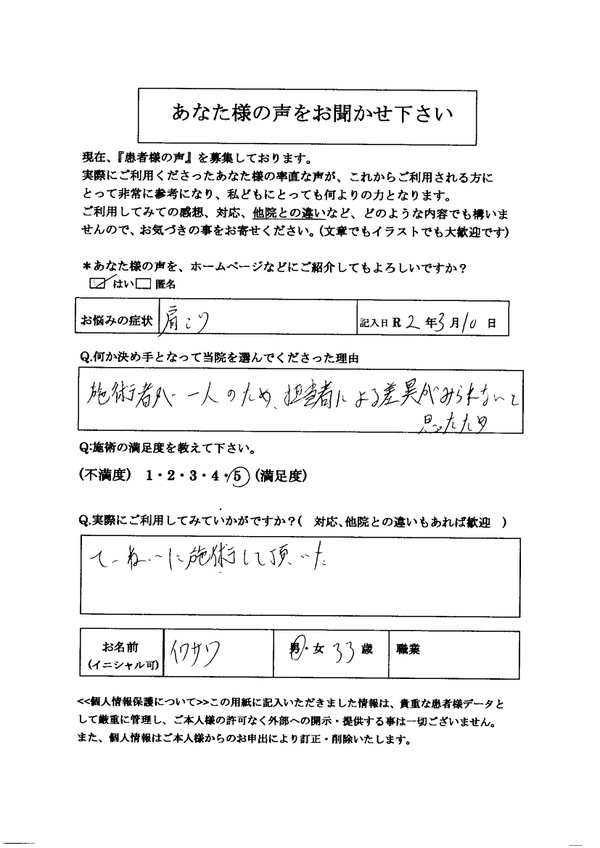 あなた様の声をお聞かせ下さい
現在、『患者様の声』を募集しております。
実際にご利用くださったあなた様の率直な声が、これからご利用される方に
とって非常に参考になり、私どもにとっても何よりの力となります。
ご利用してみての感想、対応、他院との違いなど、どのような内容でも構いま
せんので、お気づきの事をお寄せください。(文章でもイラストでも大歓迎です)
＊あなた様の声を、ホームページなどにご紹介してもよろしいですか？
☑はい□匿名
お悩みの症状 肩こり 記入日 R 2 年 3 月 10 日
Q.何か決め手となって当院を選んでくださった理由
施術者が一人のため、担当者による差異がみられないと
思ったため
Q:施術の満足度を教えて下さい。
(不満度) 1・2・3・4・5 (満足度)
Q.実際にご利用してみていかがですか？( 対応、他院との違いもあれば歓迎 )
ていねいに施術して頂いた
お名前 イワサワ 男・女 33 歳 職業
(イニシャル可)
<<個人情報保護について>>この用紙に記入いただきました情報は、貴重な患者様データと
して厳重に管理し、ご本人様の許可なく外部への開示・提供する事は一切ございません。
また、個人情報はご本人様からのお申出により訂正・削除いたします。